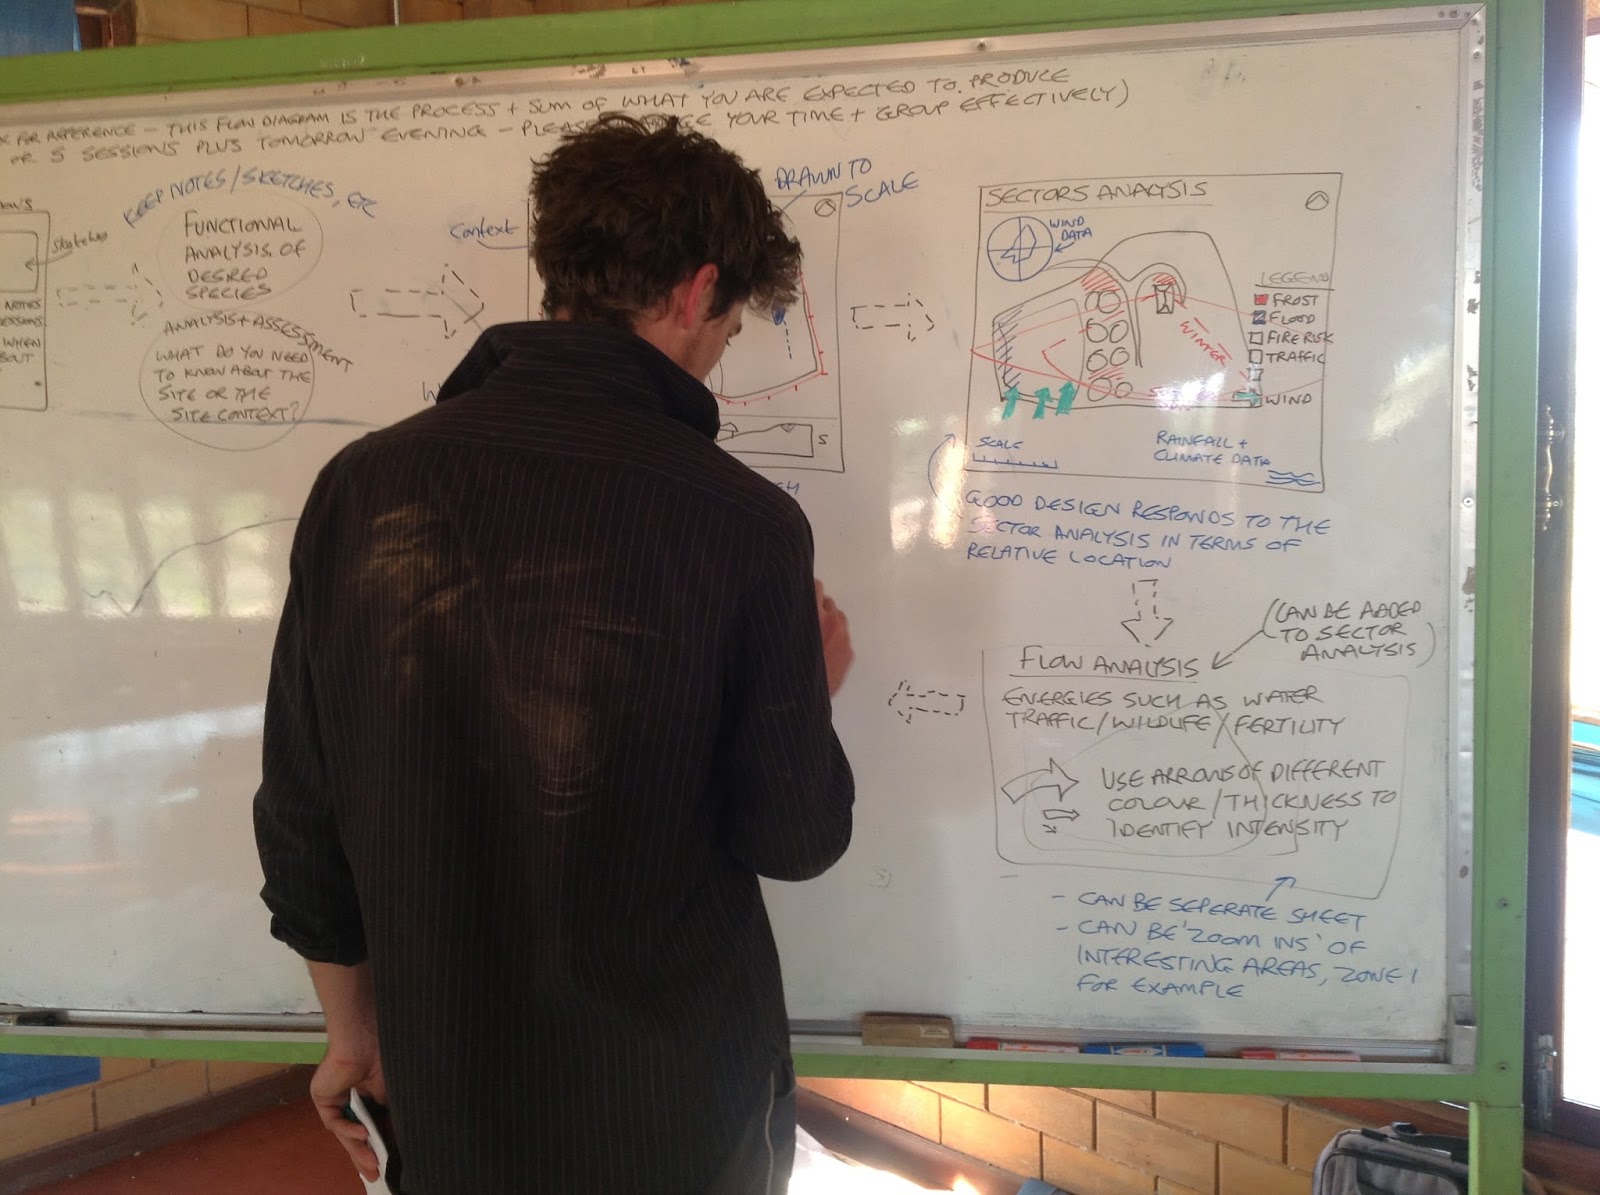 FOR REFERENCE - THIS FLOW DIAGRAM IS THE PROCESS + SUM OF WHAT YOU ARE EXPECTED TO PRODUCE
OR 5 SESSIONS PLUS TOMORROW EVENING - YOUR TIME + GROUP EFFECTIVELY)
Sketches
NOTES
WHEN
KEEP NOTES/SKETCHES, ETC
FUNCTIONAL
ANALYSIS OF
DESIRED
SPECIES
ANALYSIS + ASSESSMENT
WHAT DO YOU NEED
TO KNOW ABOUT THE
SITE OR THE
SITE CONTEXT?
Context
DRAWN TO
SCALE
S
SECTORS ANALYSIS
WIND
DATA
WINTER
LEGEND
FROST
FLOOD
FIRE RISK
TRAFFIC
WIND
SCALE
RAINFALL +
CLIMATE DATA
GOOD DESIGN RESPONDS TO THE
SECTOR ANALYSIS IN TERMS OF
RELATIVE LOCATION
(CAN BE ADDED
TO SECTOR
ANALYSIS)
FLOW ANALYSIS
ENERGIES SUCH AS WATER
TRAFFIC/WILDLIFE/FERTILITY
USE ARROWS OF DIFFERENT
COLOUR/THICKNESS TO
IDENTIFY INTENSITY
- CAN BE SEPERATE SHEET
- CAN BE 'ZOOM INS' OF
INTERESTING AREAS, ZONE 1
FOR EXAMPLE